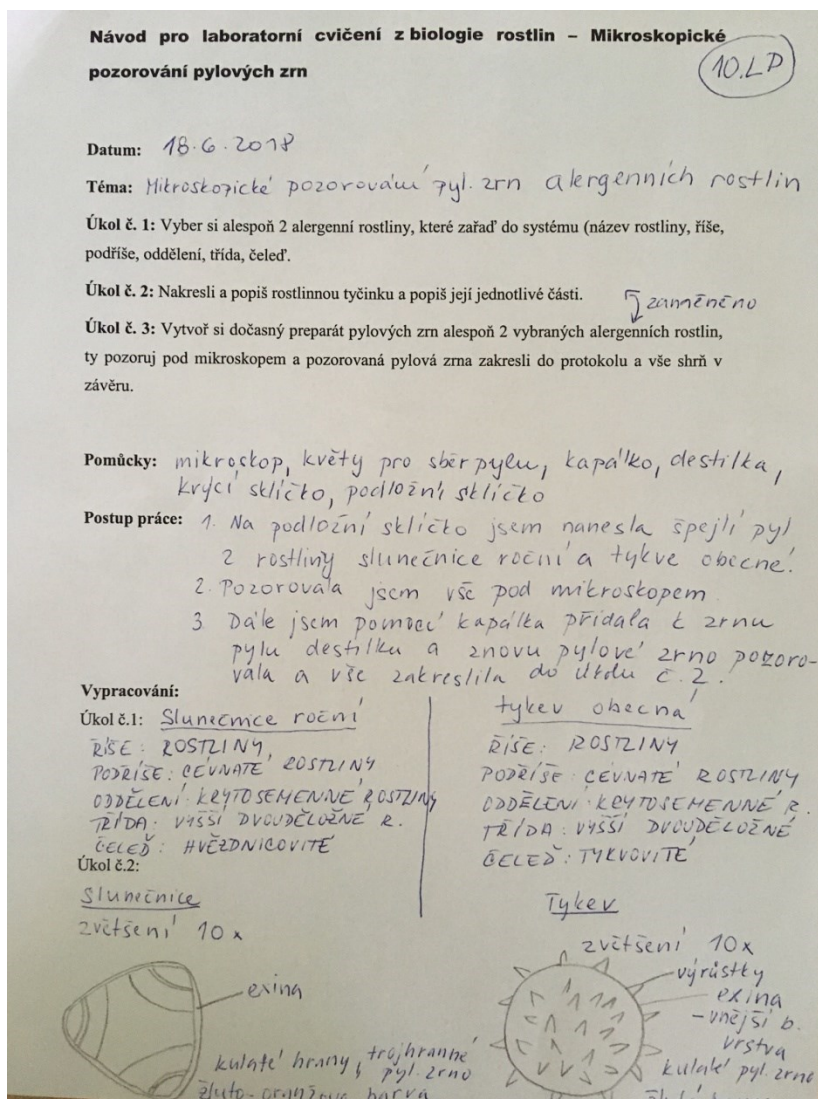 Návod pro laboratorní cvičení z biologie rostlin – Mikroskopické
pozorování pylových zrn
10. LP
Datum: 18.6.2018
Téma: Mikroskopické pozorování pyl. zrn alergenních rostlin
Úkol č. 1: Vyber si alespoň 2 alergenní rostliny, které zařaď do systému (název rostliny, říše,
podříše, oddělení, třída, čeleď.
Úkol č. 2: Nakresli a popiš rostlinnou tyčinku a popiš její jednotlivé části.
zaměněno
Úkol č. 3: Vytvoř si dočasný preparát pylových zrn alespoň 2 vybraných alergenních rostlin,
ty pozoruj pod mikroskopem a pozorovaná pylová zrna zakresli do protokolu a vše shrň v
závěru.
Pomůcky: mikroskop, květy pro sběr pylu, kapátko, destilka,
krycí sklíčko, podložní sklíčko
Postup práce: 1. Na podložní sklíčko jsem nanesla špejlí pyl
z rostliny slunečnice roční a tykve obecné.
2. Pozorovala jsem vše pod mikroskopem
3. Dále jsem pomocí kapátka přidala k zrnu
pylu destilku a znovu pylové zrno pozoro-
vala a vše zakreslila do úkolu č. 2.
Vypracování:
Úkol č.1: Slunečnice roční
ŘÍŠE: ROSTLINY,
PODŘÍŠE: CÉVNATÉ ROSTLINY
ODDĚLENÍ: KRYTOSEMENNÉ ROSTLINY
TŘÍDA: VYŠŠÍ DVOUDĚLOŽNÉ R.
ČELEĎ: HVĚZDNICOVITÉ
tykev obecná
ŘÍŠE: ROSTLINY
PODŘÍŠE: CÉVNATÉ ROSTLINY
ODDĚLENÍ: KRYTOSEMENNÉ R.
TŘÍDA: VYŠŠÍ DVOUDĚLOŽNÉ
ČELEĎ: TYKVOVITÉ
Úkol č.2:
Slunečnice
zvětšení 10x
exina
kulaté hrany, trojhranné
pyl. zrno
žluto-oranžová barva
Tykev
zvětšení 10x
výrůstky
exina
- vnější b.
vrstva
kulaté pyl. zrno